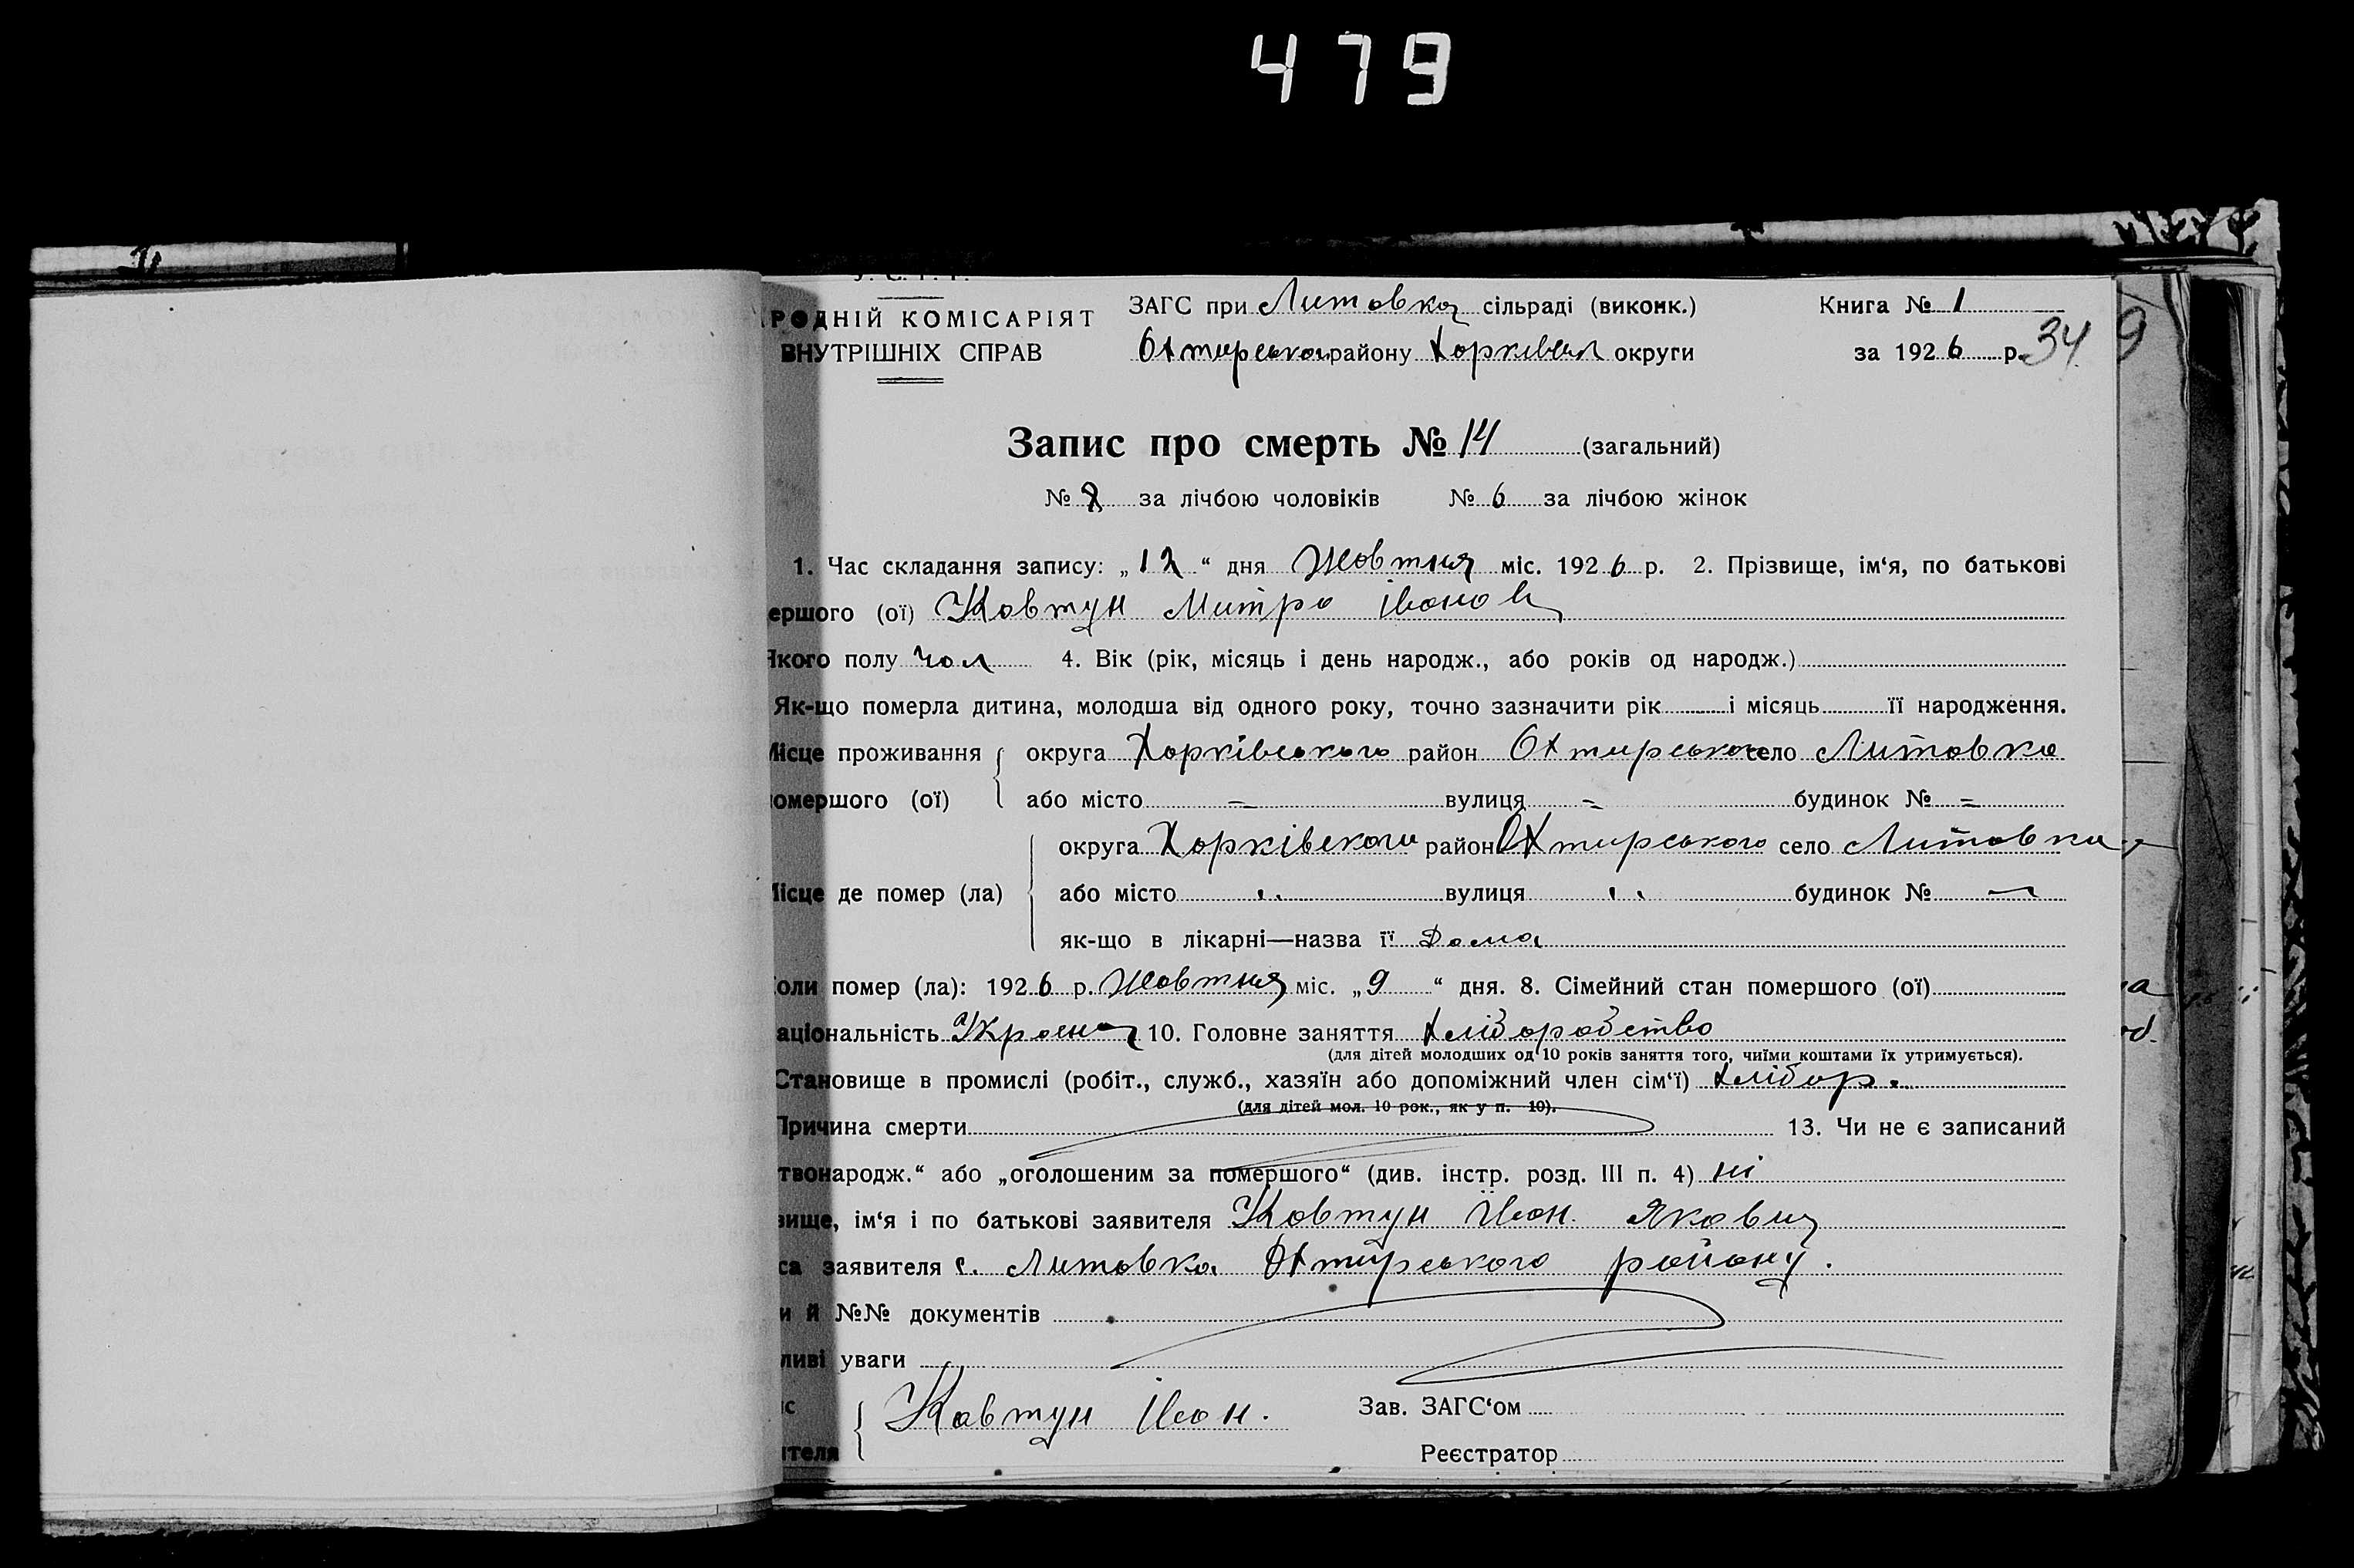 479
ЗАГС при Литовка сільраді (виконк.) Книга № 1
РОДНІЙ КОМІСАРІЯТ
ВНУТРІШНІХ СПРАВ
Охтирськог району Харківськ округи за 1926 р. 34 9
Запис про смерть № 14 (загальний)
№ 8 за лічбою чоловіків № 6 за лічбою жінок
1. Час складання запису: „12“ дня Жовтня міс. 1926 р. 2. Прізвище, ім‘я, по батькові
ершого (ої) Ковтун Митро Іванов
Якого полу чол 4. Вік (рік, місяць і день народж., або років од народж.)
Як-що померла дитина, молодша від одного року, точно зазначити рік і місяць її народження.
Місце проживання округа Харківського район Охтирського село Литовка
омершого (ої) або місто = вулиця = будинок № =
округа Харківского район Охтирського село Литовка
Місце де помер (ла) або місто „ вулиця „ будинок № —
як-що в лікарні—назва її Дома
Коли помер (ла): 1926 р. Жовтня міс. „9“ дня. 8. Сімейний стан помершого (ої)
аціональність Україн 10. Головне заняття Хліборобство
(для дітей молодших од 10 років заняття того, чиїми коштами їх утримується).
Становище в промислі (робіт., служб., хазяїн або допоміжний член сім‘ї) хлібор.
(для дітей мол. 10 рок., як у п. 10).
Причина смерти 13. Чи не є записаний
твонародж.“ або „оголошеним за помершого“ (див. інстр. розд. III п. 4) ні
вище, ім‘я і по батькові заявителя Ковтун Іван. Якович
са заявителя с. Литовка Охтирського району.
и й №№ документів
ливі уваги
с Ковтун Іван. Зав. ЗАГС‘ом
ителя Реєстратор